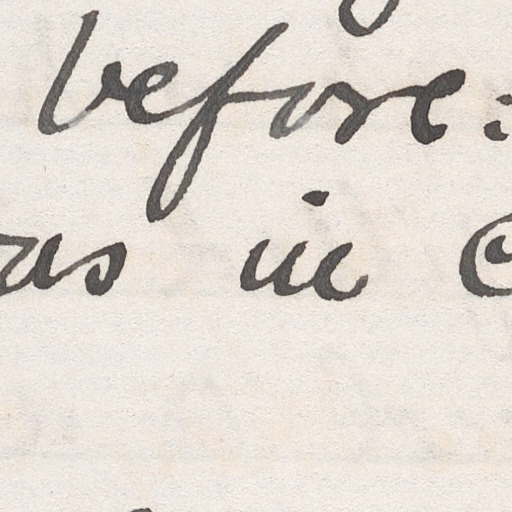 before:
as in